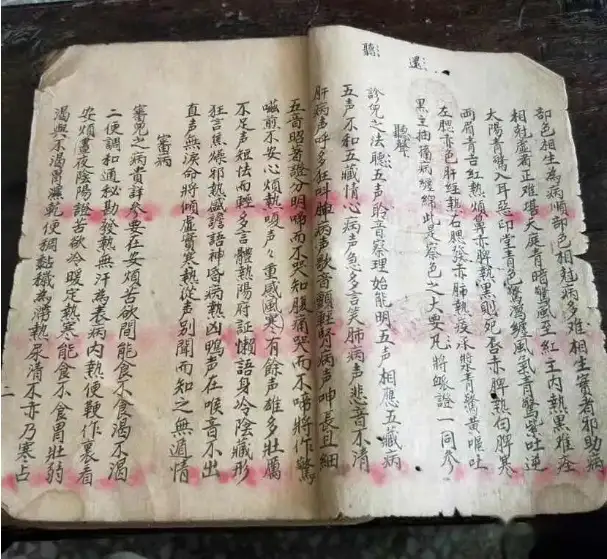 還
聽
部色相生為病順部色相尅病多难相生實者邪助病
相尅虚者正难堪天庭青暗驚風至紅主内熱黑难痊
太陽青驚入耳惡印堂青色驚瀉纏風氣青驚紫吐逆
两眉青吉紅熱煩鼻赤脾熱黑則死唇赤脾熱白脾寒
左腮赤色肝経熱右腮發赤肺熱痰承漿青驚黄嘔吐
黑主抽搐病纏綿此是察色之大要凡將脉證一同参
聽聲
診兒之法聽五声聆音察理始能明五声相應五臓病
五声不和五臓情心病声急多言笑肺病声悲音不清
肝病声呼多狂叫脾病声歌音顫輕腎病声呻長且細
五音昭著證分明啼而不哭知腹痛哭而不啼將作驚
嗞煎不安心煩熱嗄声々重感風寒有餘声雄多壯厲
不足声短怯而輕多言體熱陽府証懶語身冷陰藏形
狂言焦燥邪熱盛譫語神昏病熱凶鴨声在喉音不出
直声無淚命將傾虚實寒熱從声別聞而知之無遁情
審病
審兒之病貴詳参要在安煩苦欲間能食不食渴不渴
二便調和通秘勘發熱無汗為表病内熱便鞕作裏看
安煩晝夜陰陽證苦欲冷暖定熱寒能食不食胃壯弱
渴與不渴胃濕乾便稠黏穢為滯熱尿清不赤乃寒占
二